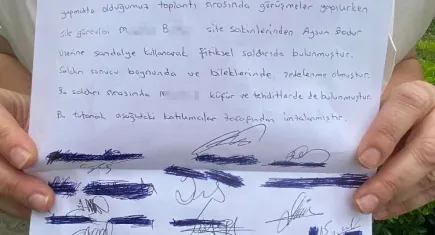 yapmakta olduğumuz toplantı sırasında görüşmeler yapılırken
site görevlisi M B site sakinlerinden Aysun
üzerine sandalye kullanarak fiziksel saldırıda bulunmuştur.
Saldırı sonucu boynunda ve bileklerinde zedelenme olmuştur.
Bu saldırı sırasında M küfür ve tehditlerde de bulunmuştur.
Bu tutanak aşağıdaki katılımcılar tarafından imzalanmıştır.